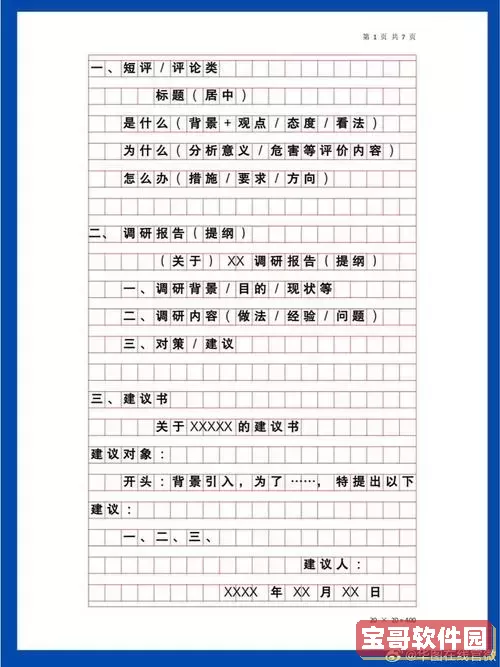 第 1 页 共 7 页
一、短评/评论类
标题(居中)
是什么(背景+观点/态度/看法)
为什么(分析意义/危害等评价内容)
怎么办(措施/要求/方向)
二、调研报告(提纲)
(关于)XX 调研报告(提纲)
一、调研背景/目的/现状等
二、调研内容(做法/经验/问题)
三、对策/建议
三、建议书
关于 XXXXX 的建议书
建议对象:
开头:背景引入,为了……,特提出以下
建议:
一、二、三、
建议人:
XXXX 年 XX 月 XX 日
20 × 20=400
宝哥软件园